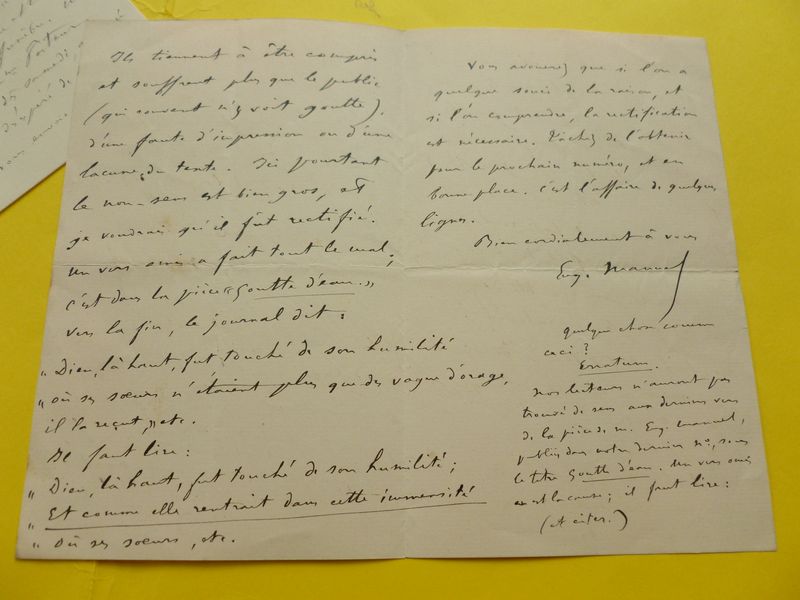 Ils tiennent à être compris
et souffrent plus que le public
(qui souvent n'y voit goutte).
d'une faute d'impression ou d'une
lacune du texte. Ici pourtant
le non-sens est bien gros, et
je voudrais qu'il fût rectifié.
Un vers omis a fait tout le mal;
c'est dans la pièce "Goutte d'eau."
vers la fin, le journal dit:
"Dieu, là haut, fut touché de son humilité
"où ses sœurs n'étaient plus que des vague d'orage,
il la reçut," etc.
Il faut lire:
"Dieu, là haut, fut touché de son humilité;
"Et comme elle rentrait dans cette immensité
"où ses sœurs, etc.
Vous avouerez que si l'on a
quelque souci de la raison, et
si l'on comprendre, la rectification
est nécessaire. Tâchez de l'obtenir
pour le prochain numéro, et en
bonne place. C'est l'affaire de quelques
lignes.
Bien cordialement à vous
Eug. Manuel
quelque chose comme
ceci?
Erratum.
Nos lecteurs n'auront pas
trouvé de sens aux derniers vers
de la pièce de M. Eug. Manuel,
publiée dans notre dernier n°, sous
le titre Goutte d'eau. Un vers omis
en est la cause; il faut lire:
(et citer.)